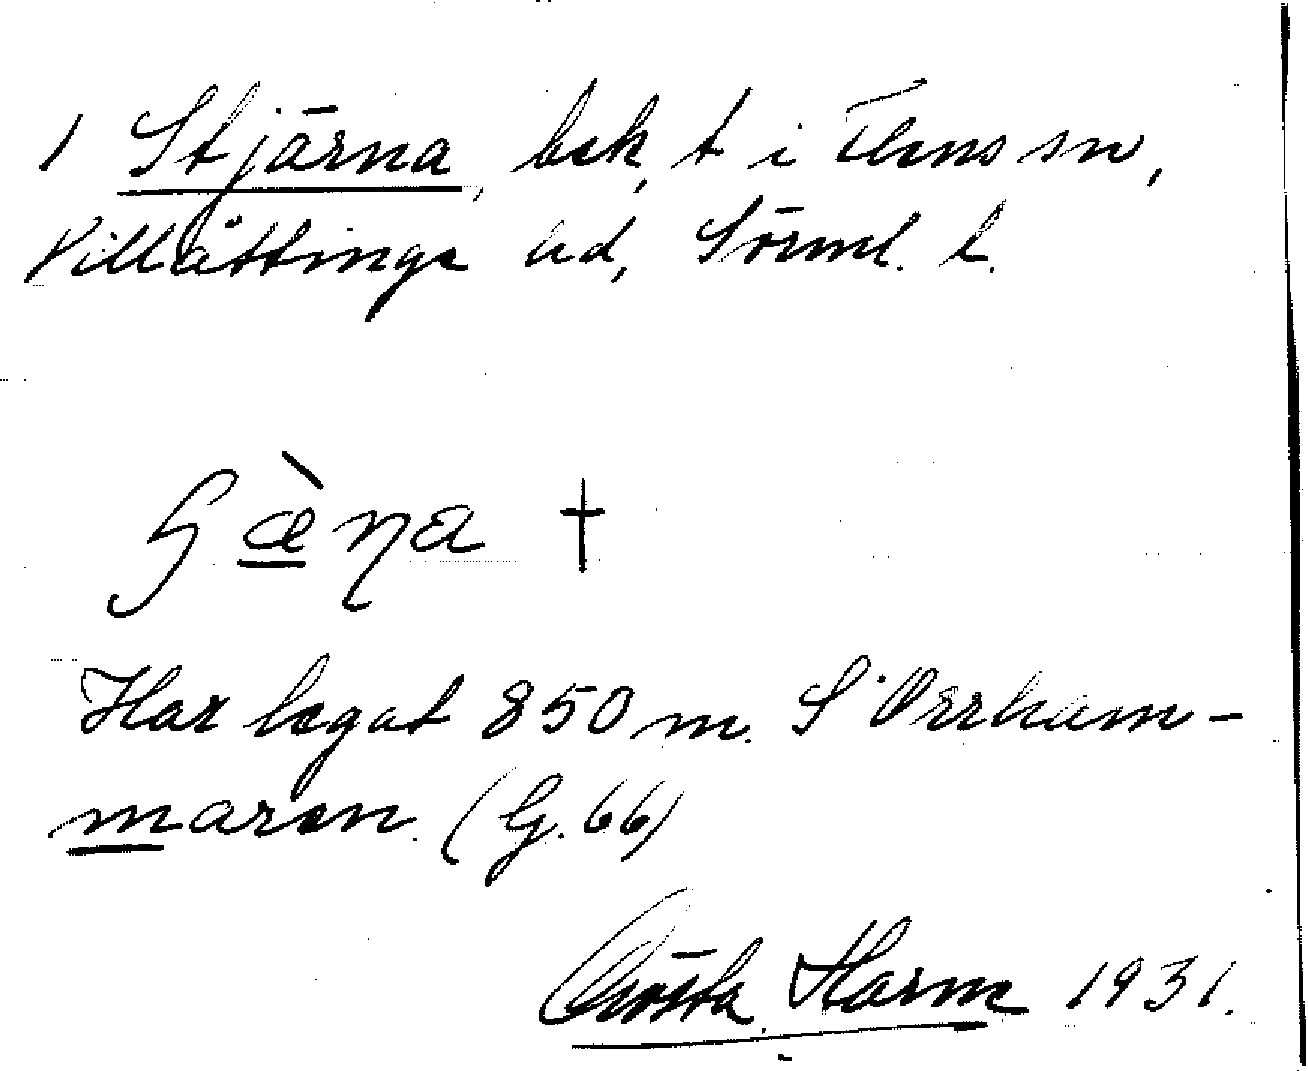 1 Stjärna, bek, t i Flens sn,
Villåttinge hd, Sörml. l.
ʃæ̀ɳa †
Har legat 850 m. S Orrham-
maren. (G. 66)
Gösta Harm 1931.